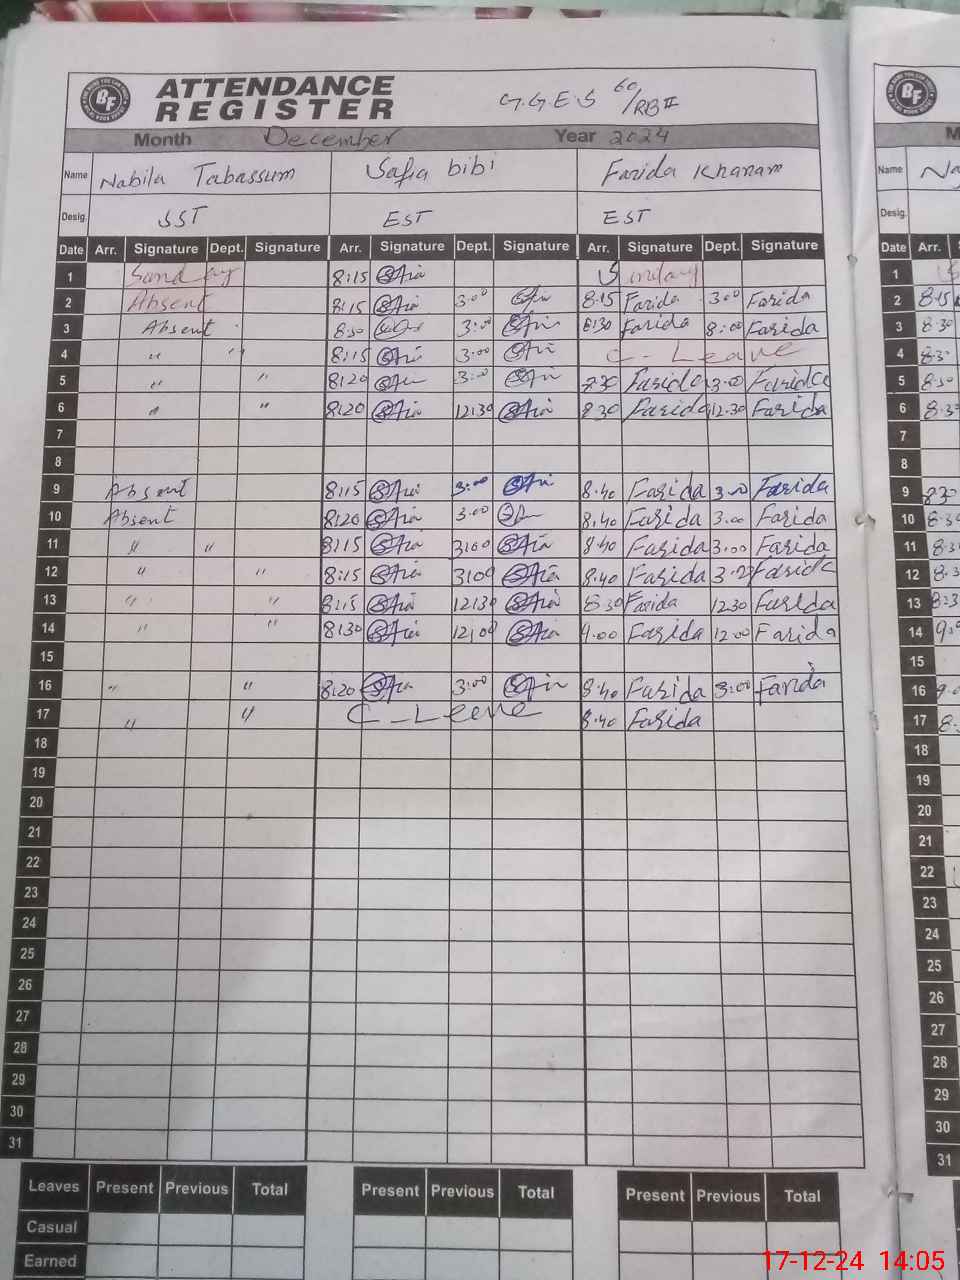 ATTENDANCE
REGISTER
G.G.E.S 60/RB II
Month December Year 2024
Name Nabila Tabassum Safia bibi Farida Khanam
Desig. SST EST EST
Date Arr. Signature Dept. Signature Arr. Signature Dept. Signature Arr. Signature Dept. Signature
1 Sunday 8:15 Sunday
2 Absent 8:15 3:00 8:15 Farida 3:00 Farida
3 Absent 8:30 3:00 8:30 Farida 8:00 Farida
4 " " 8:15 3:00 C-Leave
5 " " 8:20 3:00 8:30 Farida 3:00 Farida
6 " " 8:20 12:30 8:30 Farida 12:30 Farida
7
8
9 Absent 8:15 3:00 8:40 Farida 3:00 Farida
10 Absent 8:20 3:00 8:40 Farida 3:00 Farida
11 " " 8:15 3:00 8:40 Farida 3:00 Farida
12 " " 8:15 3:00 8:40 Farida Farida
13 " " 8:15 12:30 8:30 Farida 12:30 Farida
14 " " 8:30 12:00 9:00 Farida 12:00 Farida
15
16 " " 8:20 3:00 8:40 Farida 3:00 Farida
17 " " C-Leeve 8:40 Farida
18
19
20
21
22
23
24
25
26
27
28
29
30
31
Leaves Present Previous Total Present Previous Total Present Previous Total
Casual
Earned
Name Na
Desig.
Date Arr.
1
2 8:15
3 8:30
4
5 8:30
6
7
8
9
10
11
12
13
14
15
16
17
18
19
20
21
22
23
24
25
26
27
28
29
30
31
17-12-24 14:05